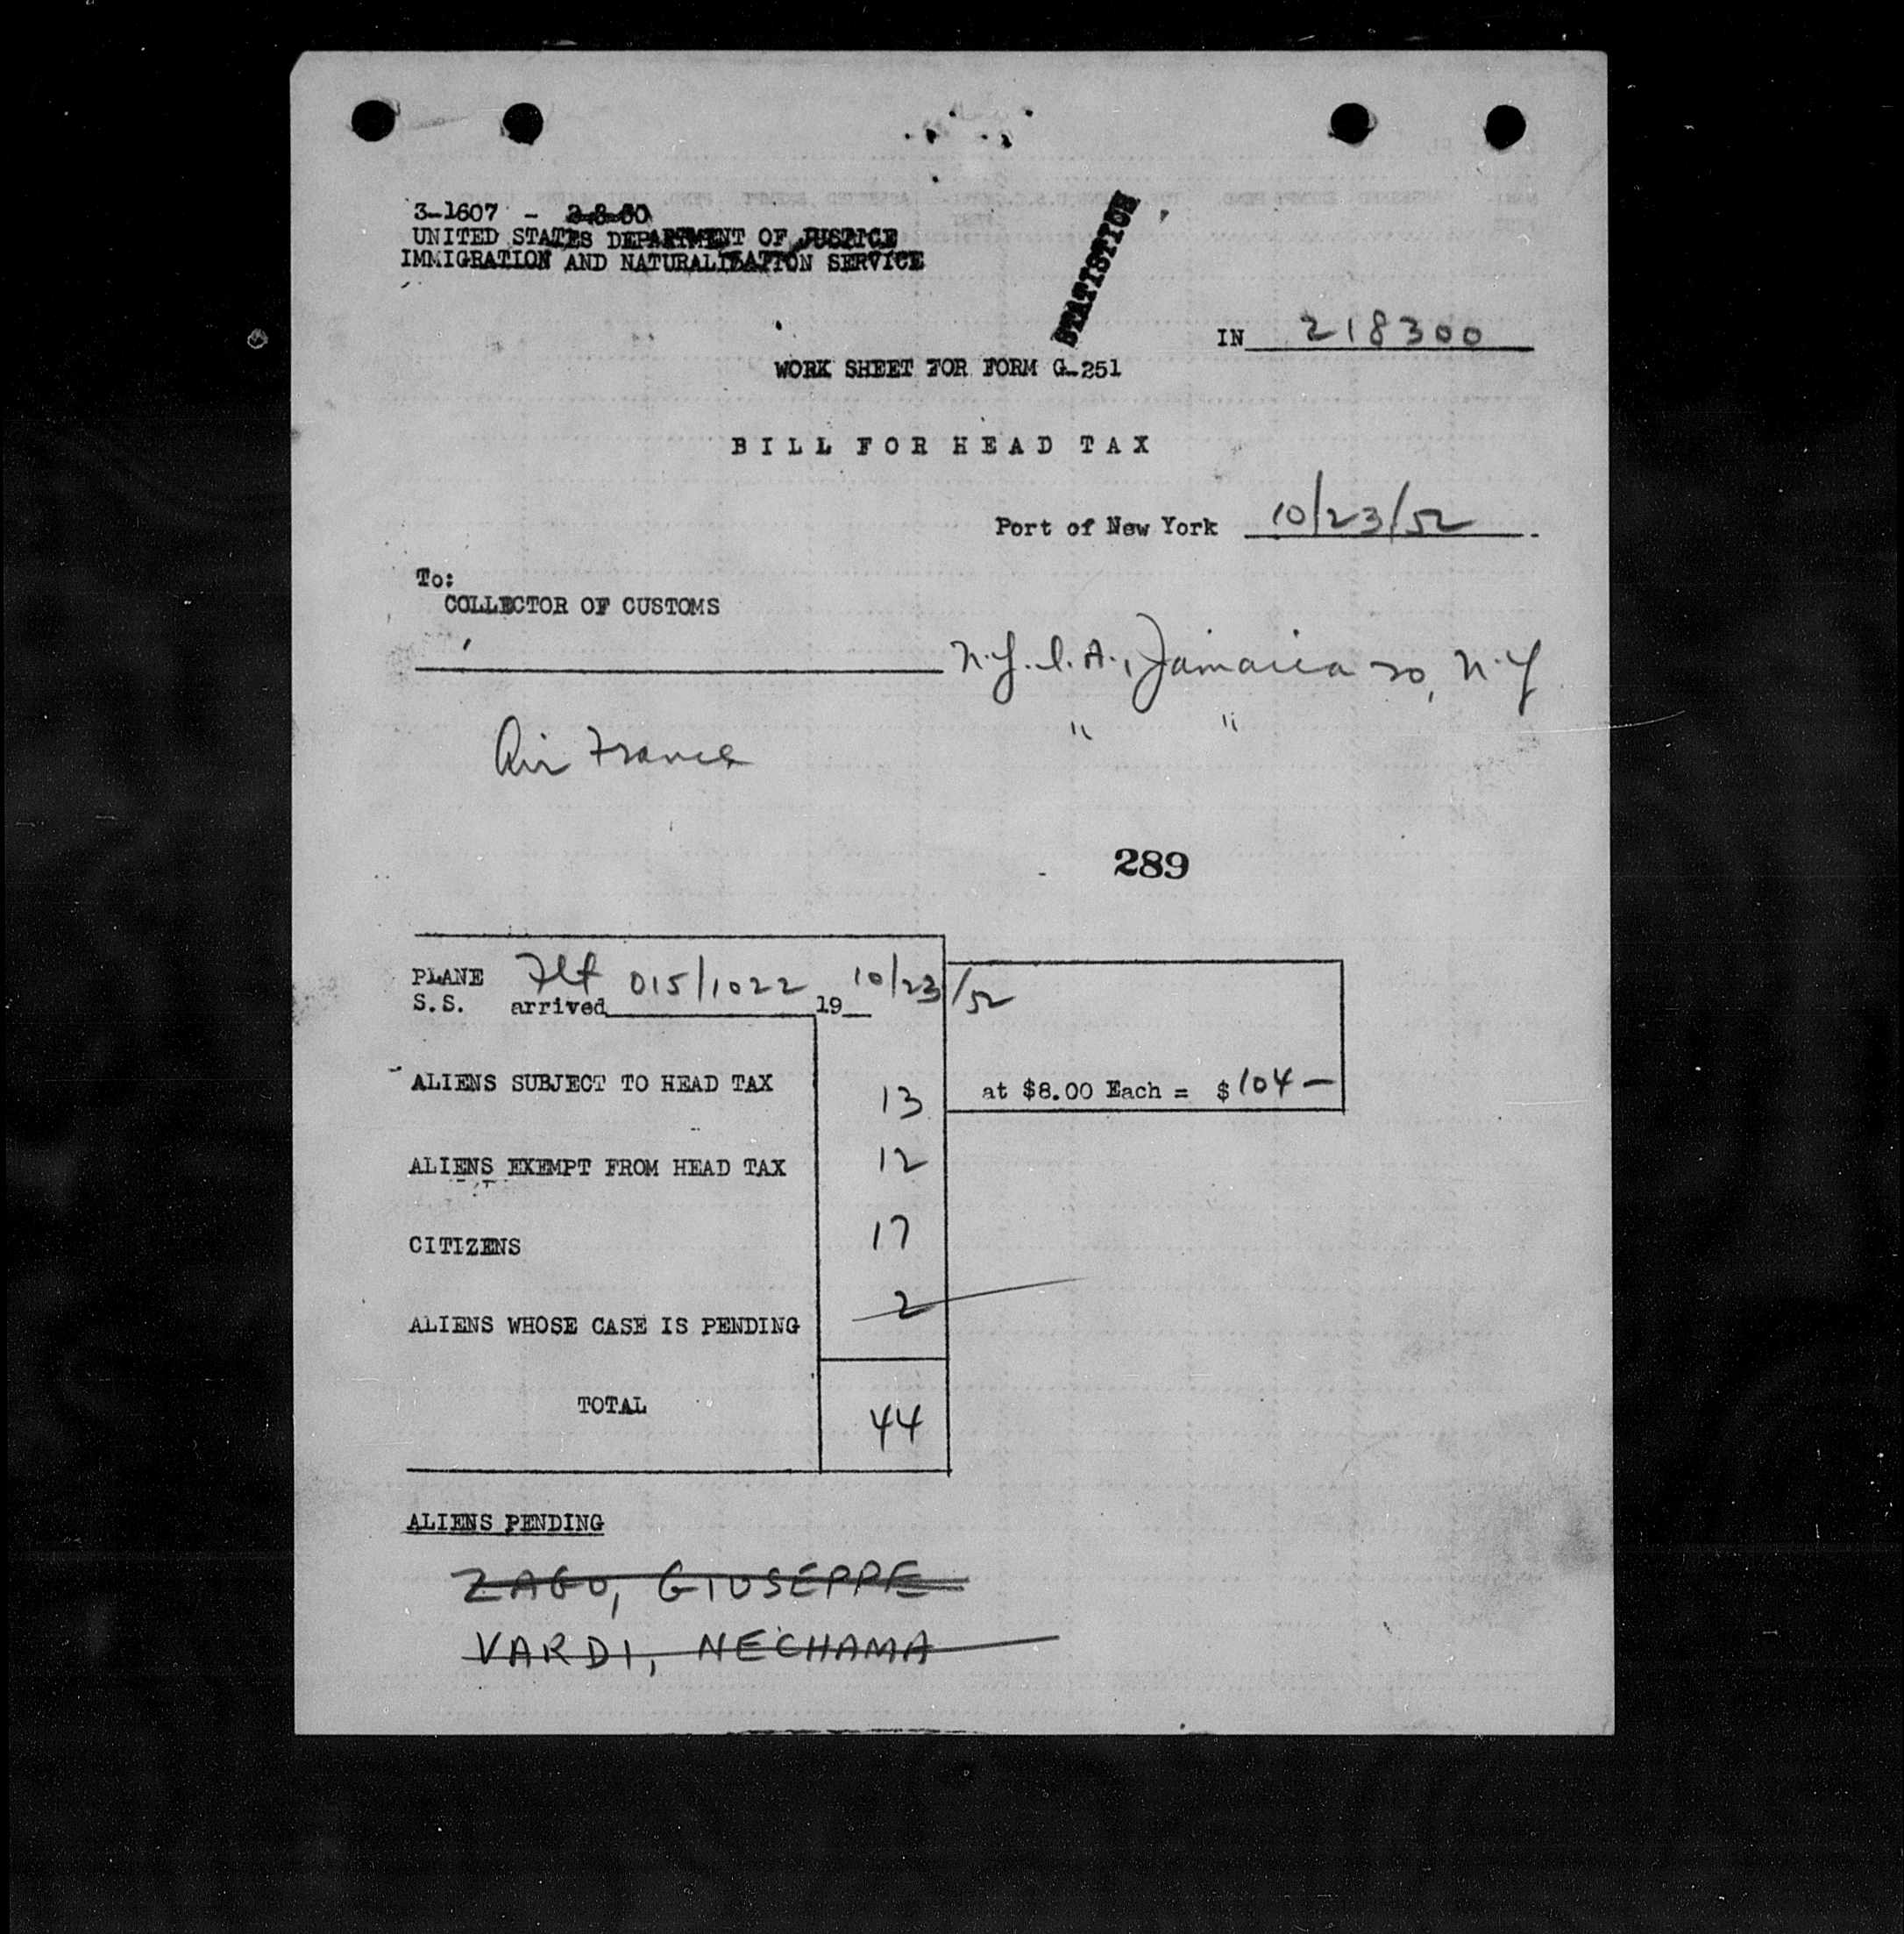 3-1607 - 2-8-50
UNITED STATES DEPARTMENT OF JUSTICE
IMMIGRATION AND NATURALIZATION SERVICE
STATISTICS
IN 218300
WORK SHEET FOR FORM G-251
BILL FOR HEAD TAX
Port of New York 10/23/52.
To:
COLLECTOR OF CUSTOMS
N.Y.I.A., Jamaica 30, N.Y
Air France " "
289
PLANE Flt 015/1022 10/23/52
S.S. arrived 19
ALIENS SUBJECT TO HEAD TAX 13 at $8.00 Each = $104-
ALIENS EXEMPT FROM HEAD TAX 12
CITIZENS 17
ALIENS WHOSE CASE IS PENDING 2
TOTAL 44
ALIENS PENDING
ZAGO, GIUSEPPE
VARDI, NECHAMA